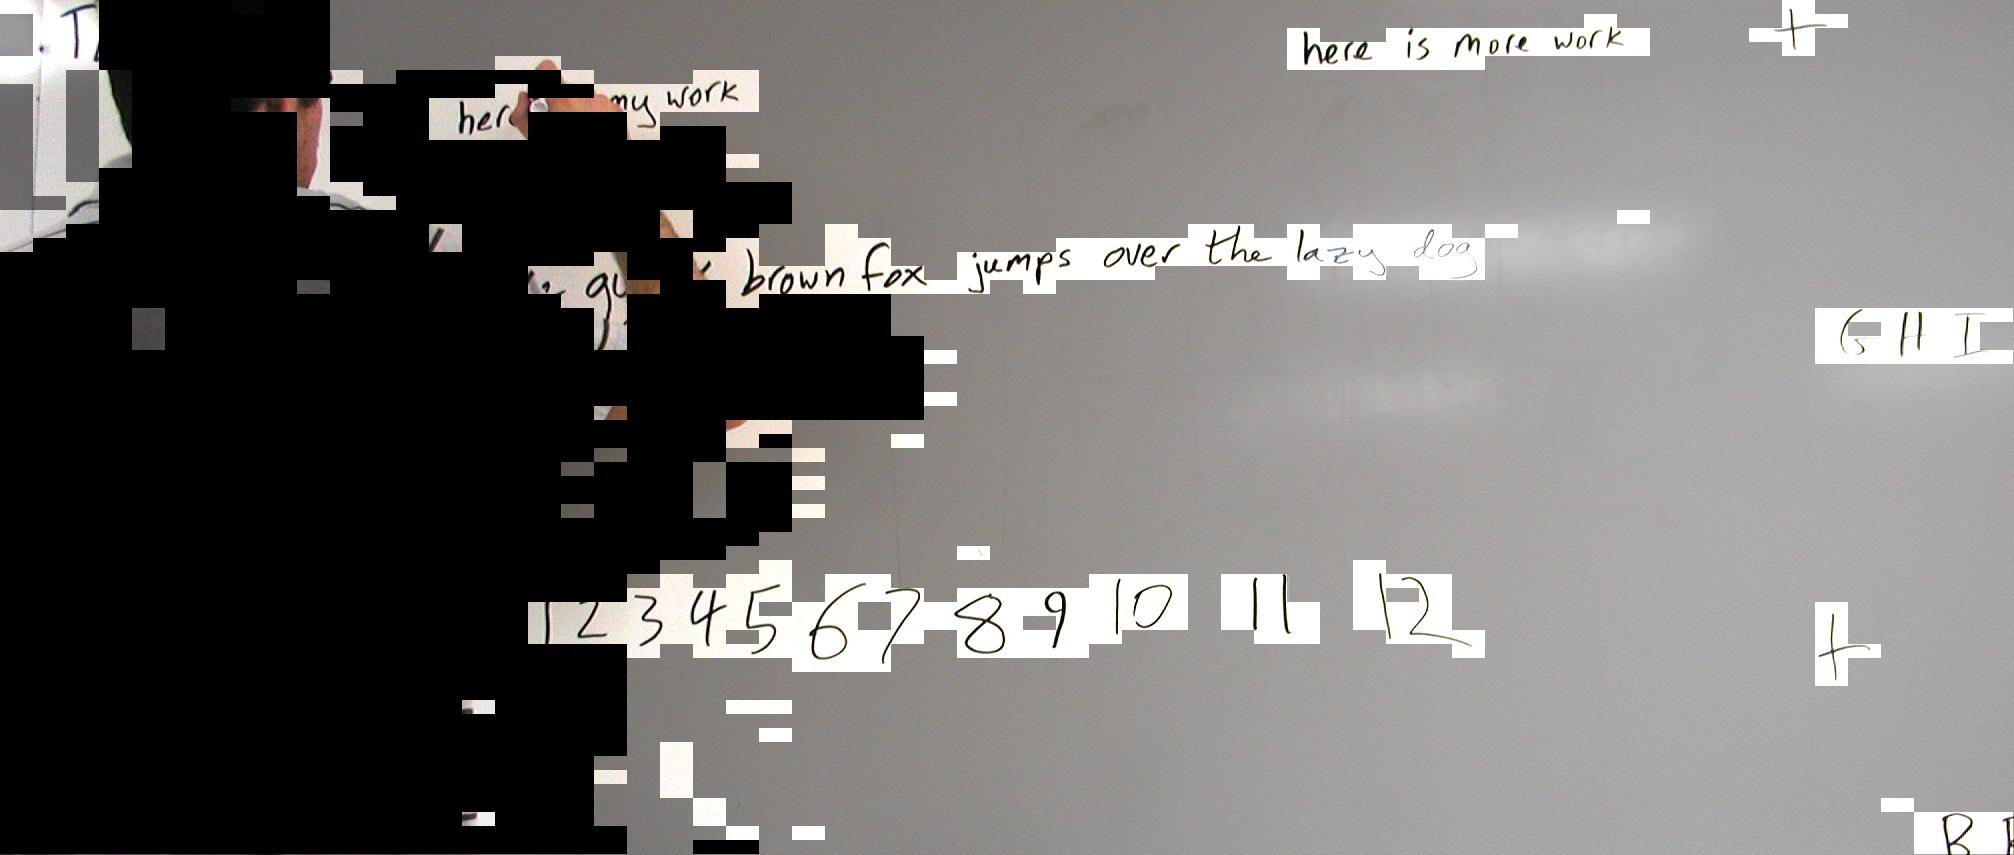 here is more work
my work
brown fox jumps over the lazy dog
G H I
1 2 3 4 5 6 7 8 9 10 11 12
B